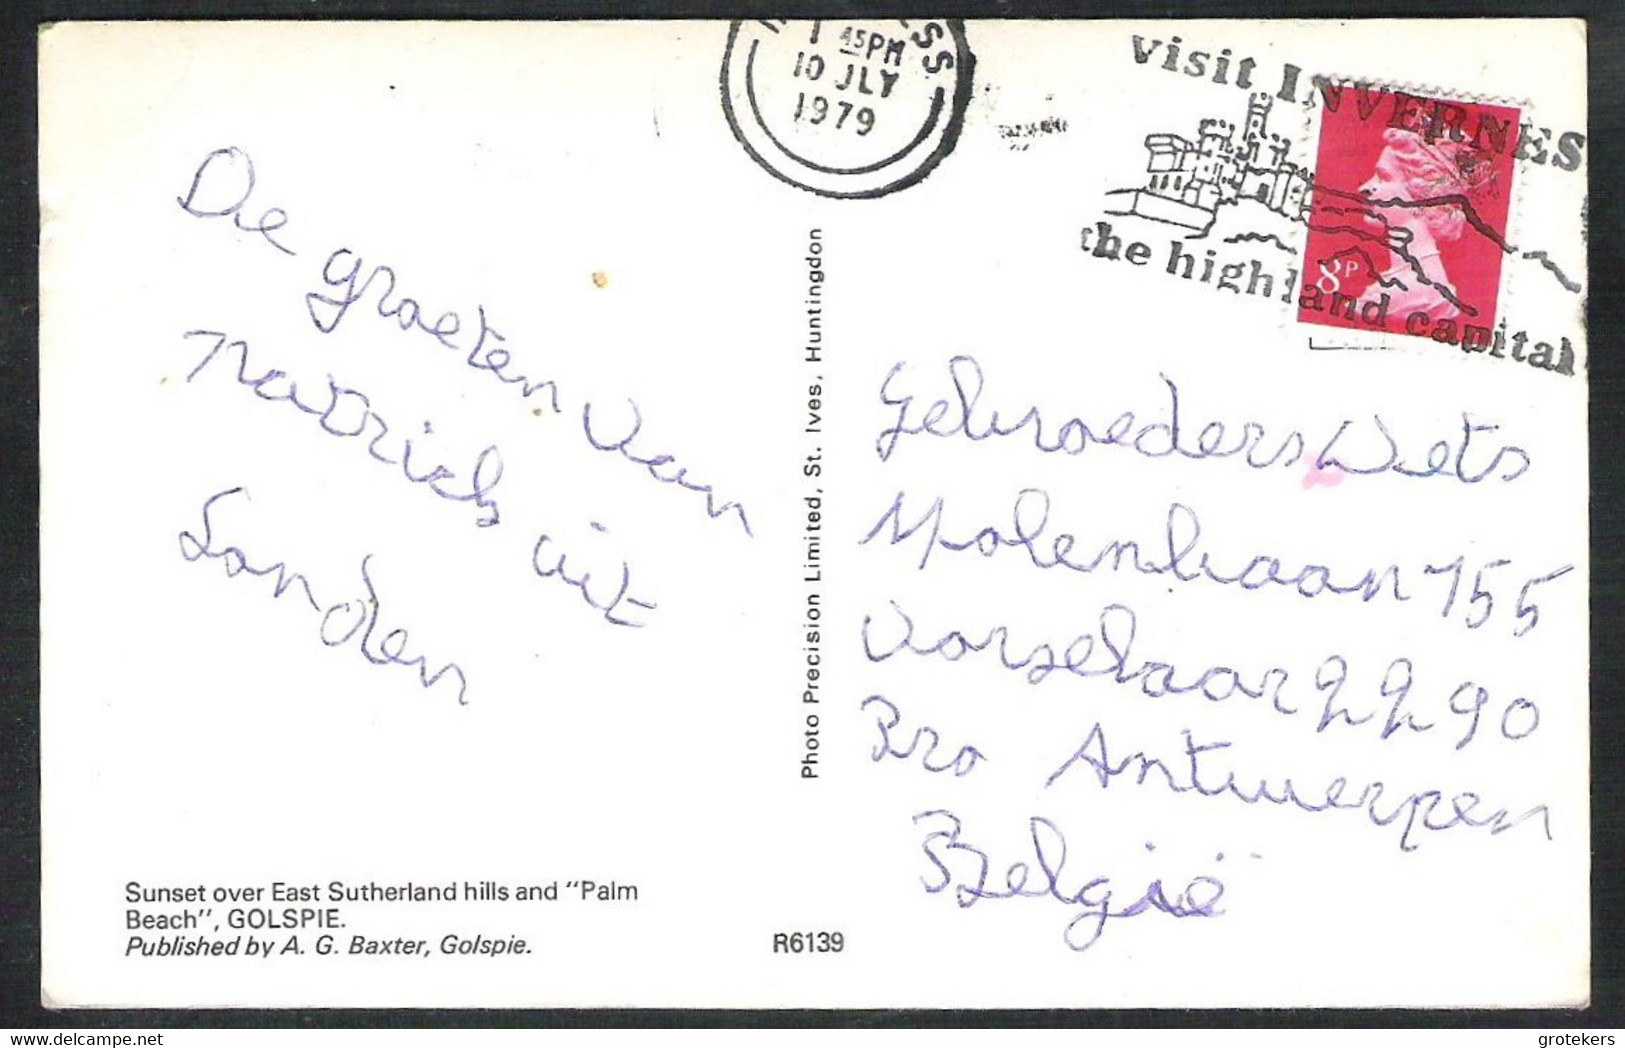 1 45PM
10 JLY
1979
visit INVERNES
the highland capital
8P
De groeten van
Patrick uit
Londen
Photo Precision Limited, St. Ives, Huntingdon
Gebroeders Wets
Molenbaan 155
Vorselaar 2290
Pro Antwerpen
België
Sunset over East Sutherland hills and "Palm
Beach", GOLSPIE.
Published by A. G. Baxter, Golspie.
R6139
grotekers
delcampe.net